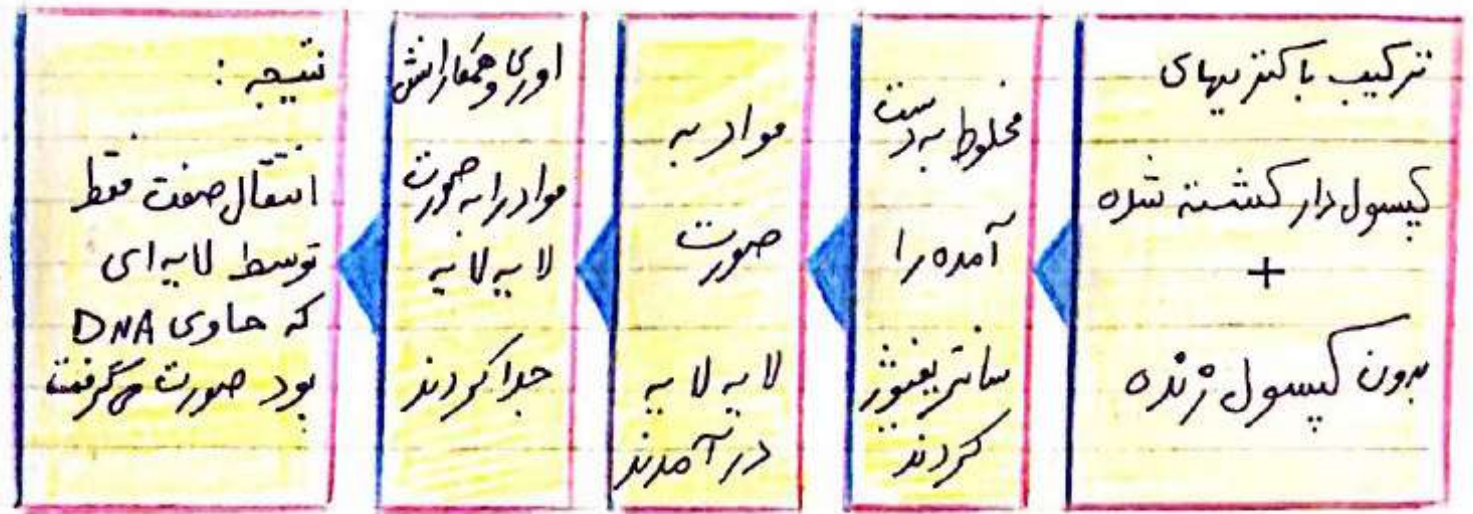 ترکیب باکتریهای
کپسول دار کشته شده
+
بدون کپسول زنده
مخلوط به دست
آمده را
سانتریفیوژ
کردند
مواد به
صورت
لایه لایه
درآمدند
اوری و همکارانش
مواد را به صورت
لایه لایه
جدا کردند
نتیجه :
انتقال صفت فقط
توسط لایه ای
که حاوی DNA
بود صورت می گرفت